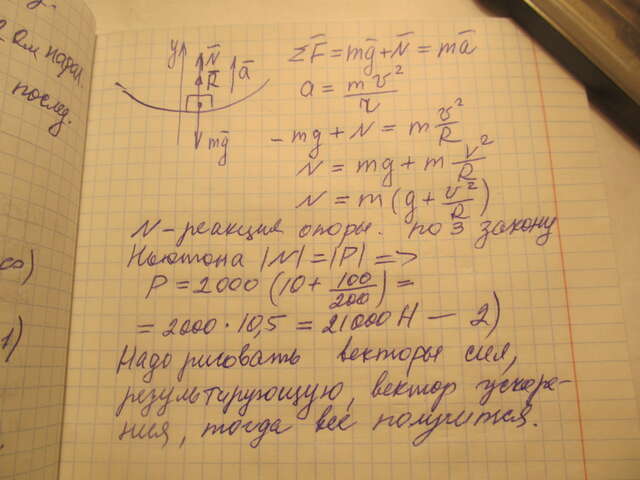 2. Ом надал.
послед.
со)
1)
y N̄
R̄ ā
mḡ
ΣF̄ = mḡ + N̄ = mā
a = mv²/r
- mg + N = m v²/R
N = mg + m v²/R
N = m(g + v²/R)
N - реакция опоры. по 3 закону
Ньютона |N| = |P| =>
P = 2000 (10 + 100/200) =
= 2000 · 10,5 = 21000 Н — 2)
Надо рисовать векторы сил,
результирующую, вектор ускоре-
ния, тогда все получится.